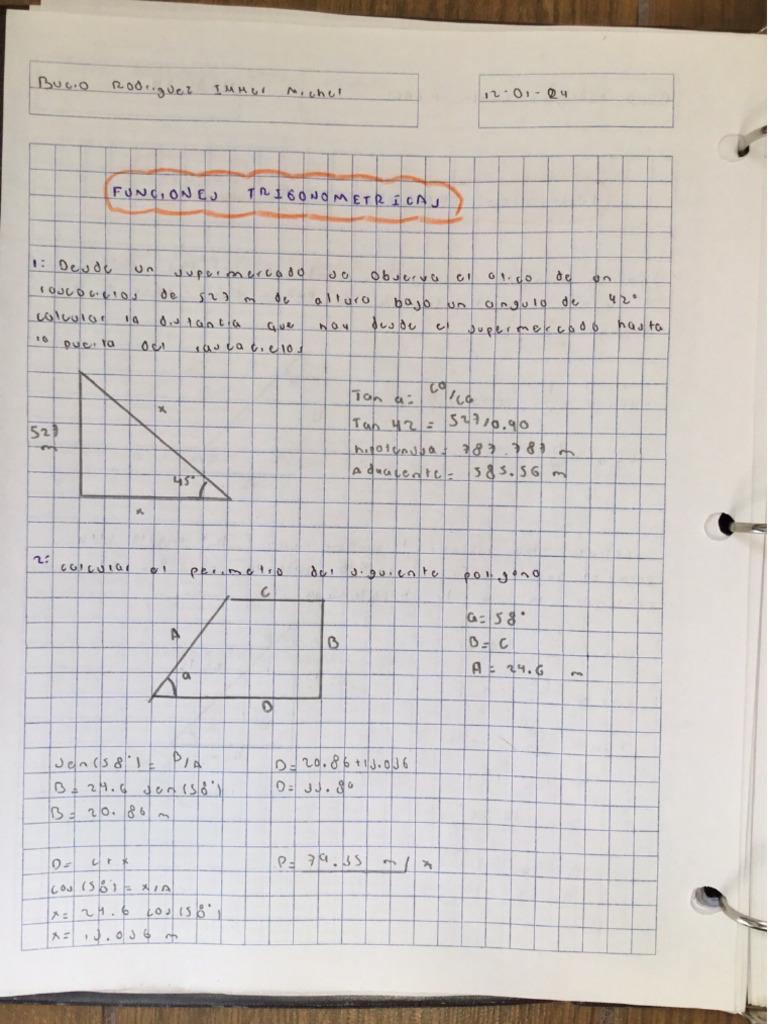 Bucio Rodriguez Immer Michel
12-01-24
FUNCIONES TRIGONOMETRICAS
1: Desde un supermercado se observa el atico de un
rascacielos de 527 m de altura bajo un angulo de 42°
calcular la distancia que hay desde el supermercado hasta
la puerta del rascacielos
527
m
x
45°
x
Tan a = CO/CA
Tan 42 = 527/0.90
hipotenusa = 787.787 m
Adyacente = 585.56 m
2: calcular el perimetro del siguiente poligono
C
A
B
a
D
a = 58°
B = C
A = 24.6 m
sen(58°) = B/A
B = 24.6 sen(58°)
B = 20.86 m
D = 20.86 + 13.036
D = 33.89
D = C + x
cos(58°) = x/A
x = 24.6 cos(58°)
x = 13.036 m
P = 79.35 m / x